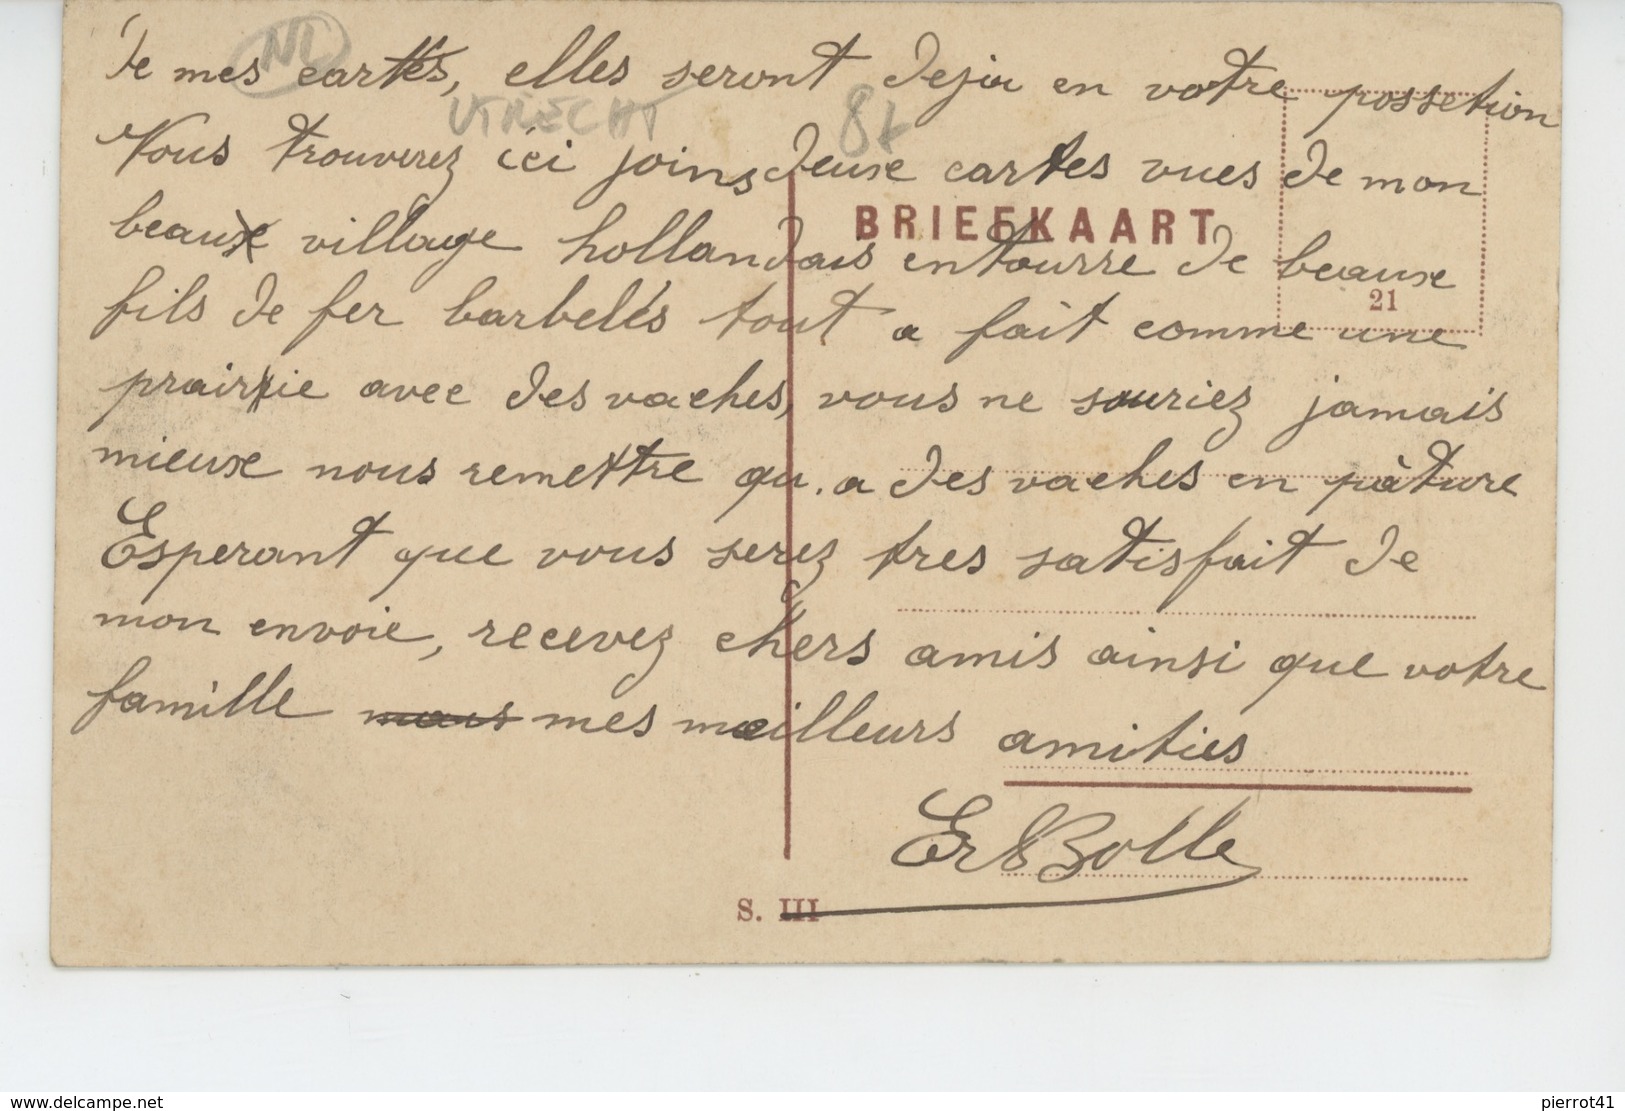 de mes cartes, elles seront deja en votre possetion
NL
UTRECHT
Vous trouverez ici joins deuxe cartes vues de mon
BRIEFKAART
beaux village hollandais entourre de beaux
21
fils de fer barbelés tout a fait comme une
prairie avec des vaches, vous ne souriez jamais
mieux nous remettre qu'a des vaches en pâture
Esperant que vous serez tres satisfait de
mon envoie, recevez chers amis ainsi que votre
famille mes meilleurs amities
Bolle
S. III
www.delcampe.net
pierrot41